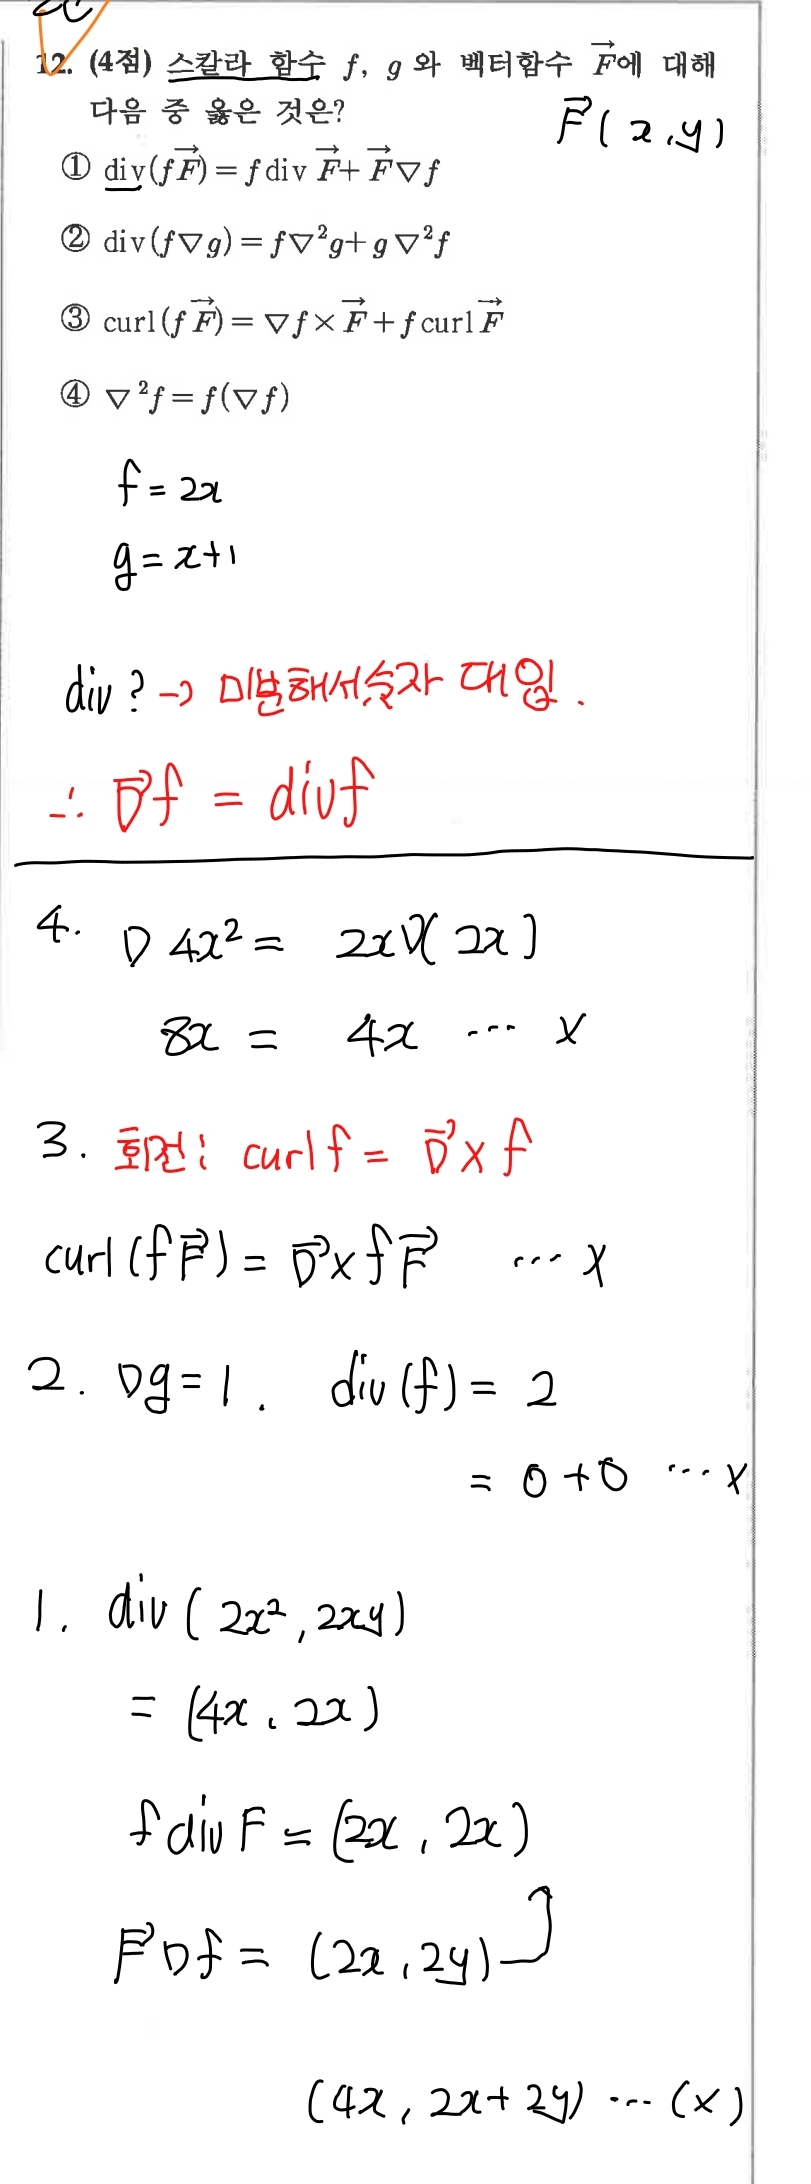 12. (4점) 스칼라 함수 f, g 와 벡터함수 F⃗에 대해
다음 중 옳은 것은?
F⃗(x,y)
① div(fF⃗) = f div F⃗ + F⃗∇f
② div(f∇g) = f∇²g + g∇²f
③ curl(fF⃗) = ∇f × F⃗ + f curl F⃗
④ ∇²f = f(∇f)
f = 2x
g = x+1
div? → 미분해서 숫자 대입.
∴ ∇⃗f = divf
4. ∇ 4x² = 2x∇(2x)
8x = 4x ... x
3. 회전: curl f = ∇⃗ × f
curl(fF⃗) = ∇⃗ × fF⃗ ... x
2. ∇g = 1. div(f) = 2
= 0+0 ... x
1. div(2x², 2xy)
= (4x, 2x)
f div F = (2x, 2x)
F⃗∇f = (2x, 2y)
(4x, 2x+2y) ... (x)